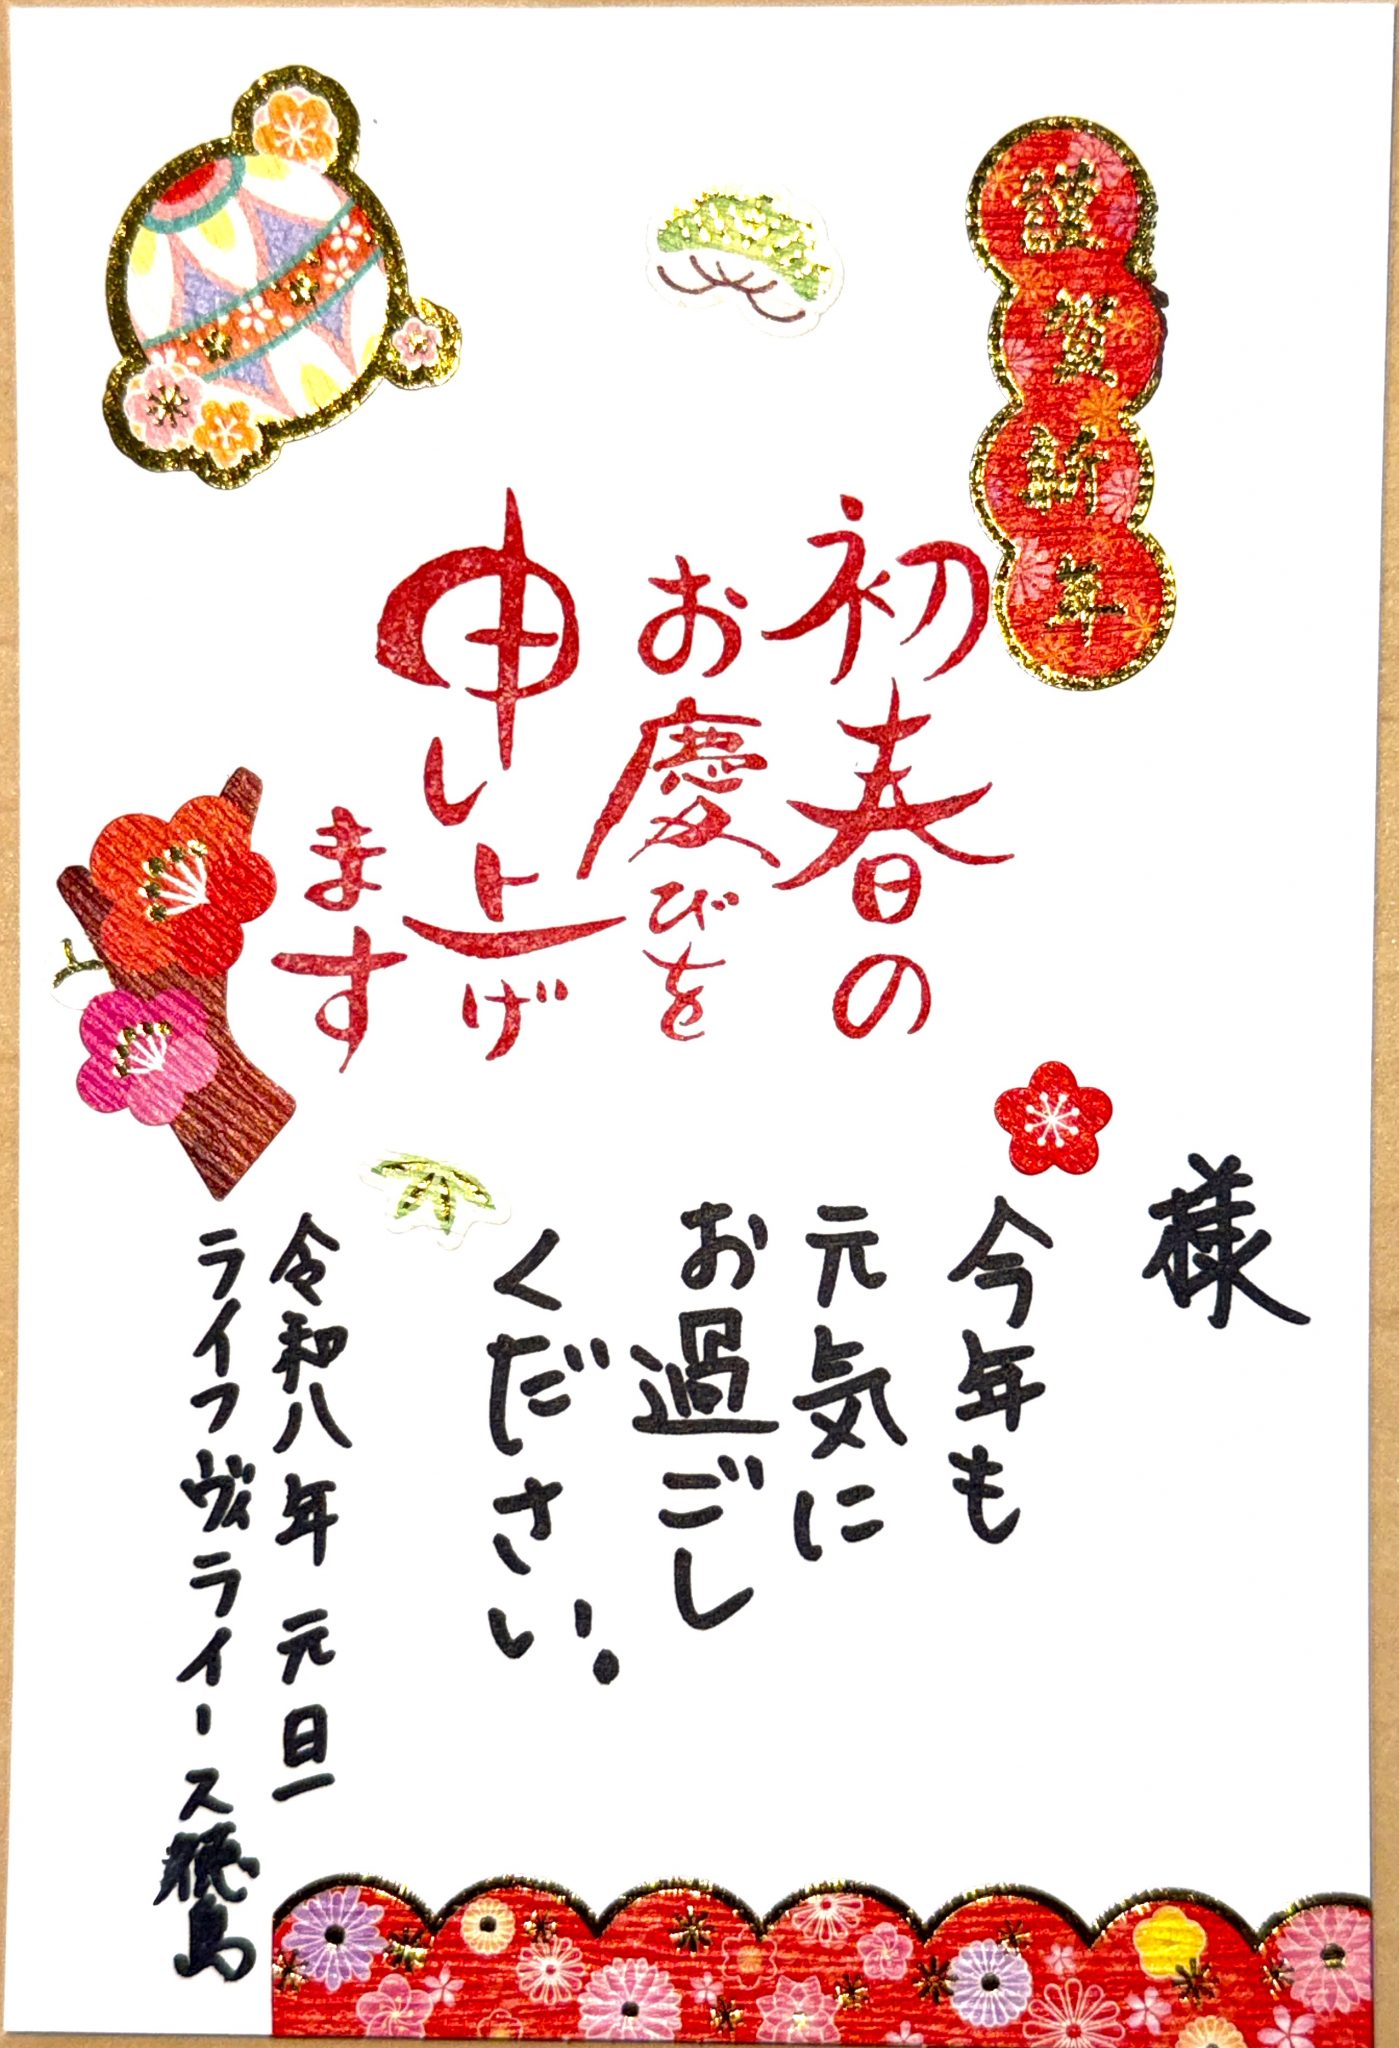 謹賀新年
初春の
お慶びを
申し上げ
ます
様
今年も
元気に
お過ごし
ください。
令和八年 元旦
ライフヴィライース